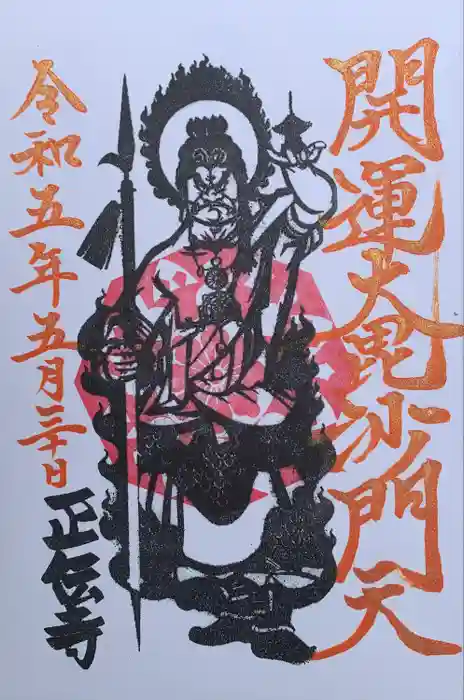 開運大毘沙門天
令和五年五月二十日
正伝寺